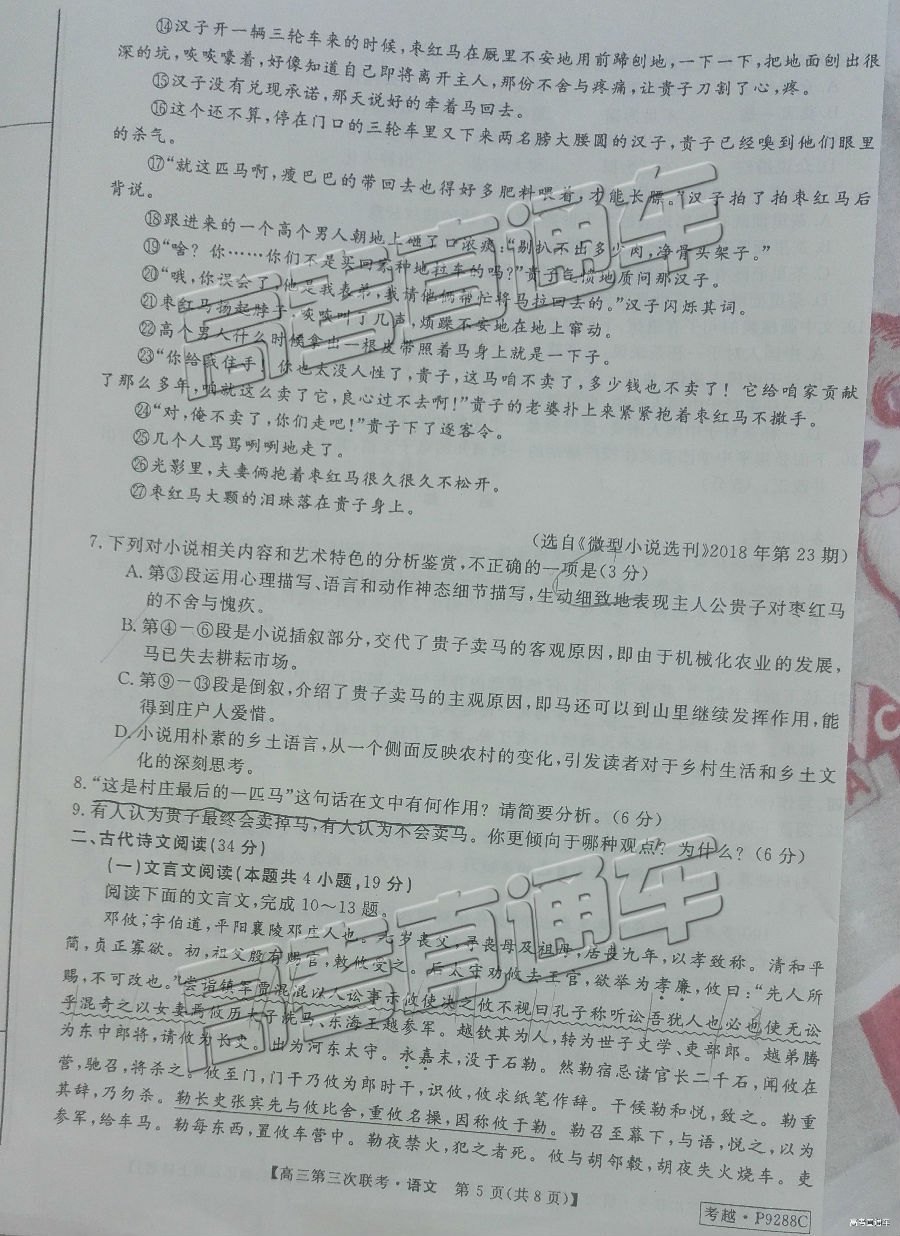 ⑭汉子开一辆三轮车来的时候，枣红马在厩里不安地用前蹄刨地，一下一下，把地面刨出很
深的坑，咴咴嚎着，好像知道自己即将离开主人，那份不舍与疼痛，让贵子刀割了心，疼。
⑮汉子没有兑现承诺，那天说好的牵着马回去。
⑯这个还不算，停在门口的三轮车里又下来两名膀大腰圆的汉子，贵子已经嗅到他们眼里
的杀气。
⑰“就这匹马啊，瘦巴巴的带回去也得好多肥料喂着，才能长膘。”汉子拍了拍枣红马后
背说。
⑱跟进来的一个高个男人朝地上碰了口浓痰：“剔扒不出多少肉，净骨头架子。”
⑲“啥？你……你们不是买回家种地拉车的吗？”贵子气愤地质问那汉子。
⑳“哦，你误会了，他是我表弟，我请他俩帮忙将马拉回去的。”汉子闪烁其词。
㉑枣红马扬起脖子，咴咴叫了几声，烦躁不安地在地上窜动。
㉒高个男人什么时候拿出一根皮带照着马身上就是一下子。
㉓“你给我住手！你也太没人性了，贵子，这马咱不卖了，多少钱也不卖了！它给咱家贡献
了那么多年，咱就这么卖了它，良心过不去啊！”贵子的老婆扑上来紧紧抱着枣红马不撒手。
㉔“对，俺不卖了，你们走吧！”贵子下了逐客令。
㉕几个人骂骂咧咧地走了。
㉖光影里，夫妻俩抱着枣红马很久很久不松开。
㉗枣红马大颗的泪珠落在贵子身上。
（选自《微型小说选刊》2018年第23期）
7.下列对小说相关内容和艺术特色的分析鉴赏，不正确的一项是（3分）
A.第③段运用心理描写、语言和动作神态细节描写，生动细致地表现主人公贵子对枣红马
的不舍与愧疚。
B.第④－⑥段是小说插叙部分，交代了贵子卖马的客观原因，即由于机械化农业的发展，
马已失去耕耘市场。
C.第⑨－⑬段是倒叙，介绍了贵子卖马的主观原因，即马还可以到山里继续发挥作用，能
得到庄户人爱惜。
D.小说用朴素的乡土语言，从一个侧面反映农村的变化，引发读者对于乡村生活和乡土文
化的深刻思考。
8.“这是村庄最后的一匹马”这句话在文中有何作用？请简要分析。（6分）
9.有人认为贵子最终会卖掉马，有人认为不会卖马。你更倾向于哪种观点？为什么？（6分）
二、古代诗文阅读（34分）
（一）文言文阅读（本题共4小题，19分）
阅读下面的文言文，完成10～13题。
邓攸，字伯道，平阳襄陵邓庄人也。七岁丧父，寻丧母及祖母，居丧九年，以孝致称。清和平
简，贞正寡欲。初，祖父殷有赐官，敕攸受之。后太守劝攸去王官，欲举为孝廉，攸曰：“先人所
赐，不可改也。”尝诣镇军贾混混以人讼事示攸使决之攸不视曰孔子称听讼吾犹人也必也使无讼
乎混奇之以女妻焉攸历太子洗马、东海王越参军。越钦其为人，转为世子文学、吏部郎。越弟腾
为东中郎将，请攸为长史。出为河东太守。永嘉末，没于石勒。然勒宿忌诸官长二千石，闻攸在
营，驰召，将杀之。攸至门，门干乃攸为郎时干，识攸，攸求纸笔作辞。干候勒和悦，致之。勒重
其辞，乃勿杀。勒长史张宾先与攸比舍，重攸名操，因称攸于勒。勒召至幕下，与语，悦之，以为
参军，给车马。勒每东西，置攸车营中。勒夜禁火，犯之者死。攸与胡邻毂，胡夜失火烧车。吏
【高三第三次联考·语文 第5页（共8页）】
考越·P9288C
高考直通车
高考直通车
高考直通车